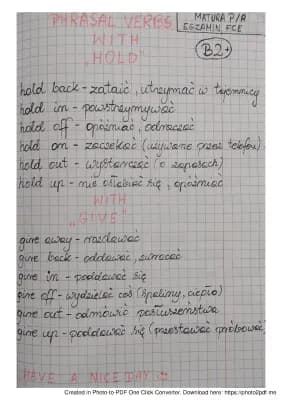 PHRASAL VERBS
MATURA P/R
EGZAMIN FCE
WITH
"HOLD"
B2+
hold back - zataić, utrzymać w tajemnicy
hold in - powstrzymywać
hold off - opóźniać, odraczać
hold on - zaczekać (używane przez telefon)
hold out - wystarczać (o zapasach)
hold up - nie osłabiać się, opóźniać
WITH
"GIVE"
give away - rozdawać
give back - oddawać, zwracać
give in - poddawać się
give off - wydzielać coś (spaliny, ciepło)
give out - odmówić posłuszeństwa
give up - poddawać się (przestawać próbować)
HAVE A NICE DAY
Created in Photo-to-PDF One Click Converter. Download here: https://photo2pdf.me